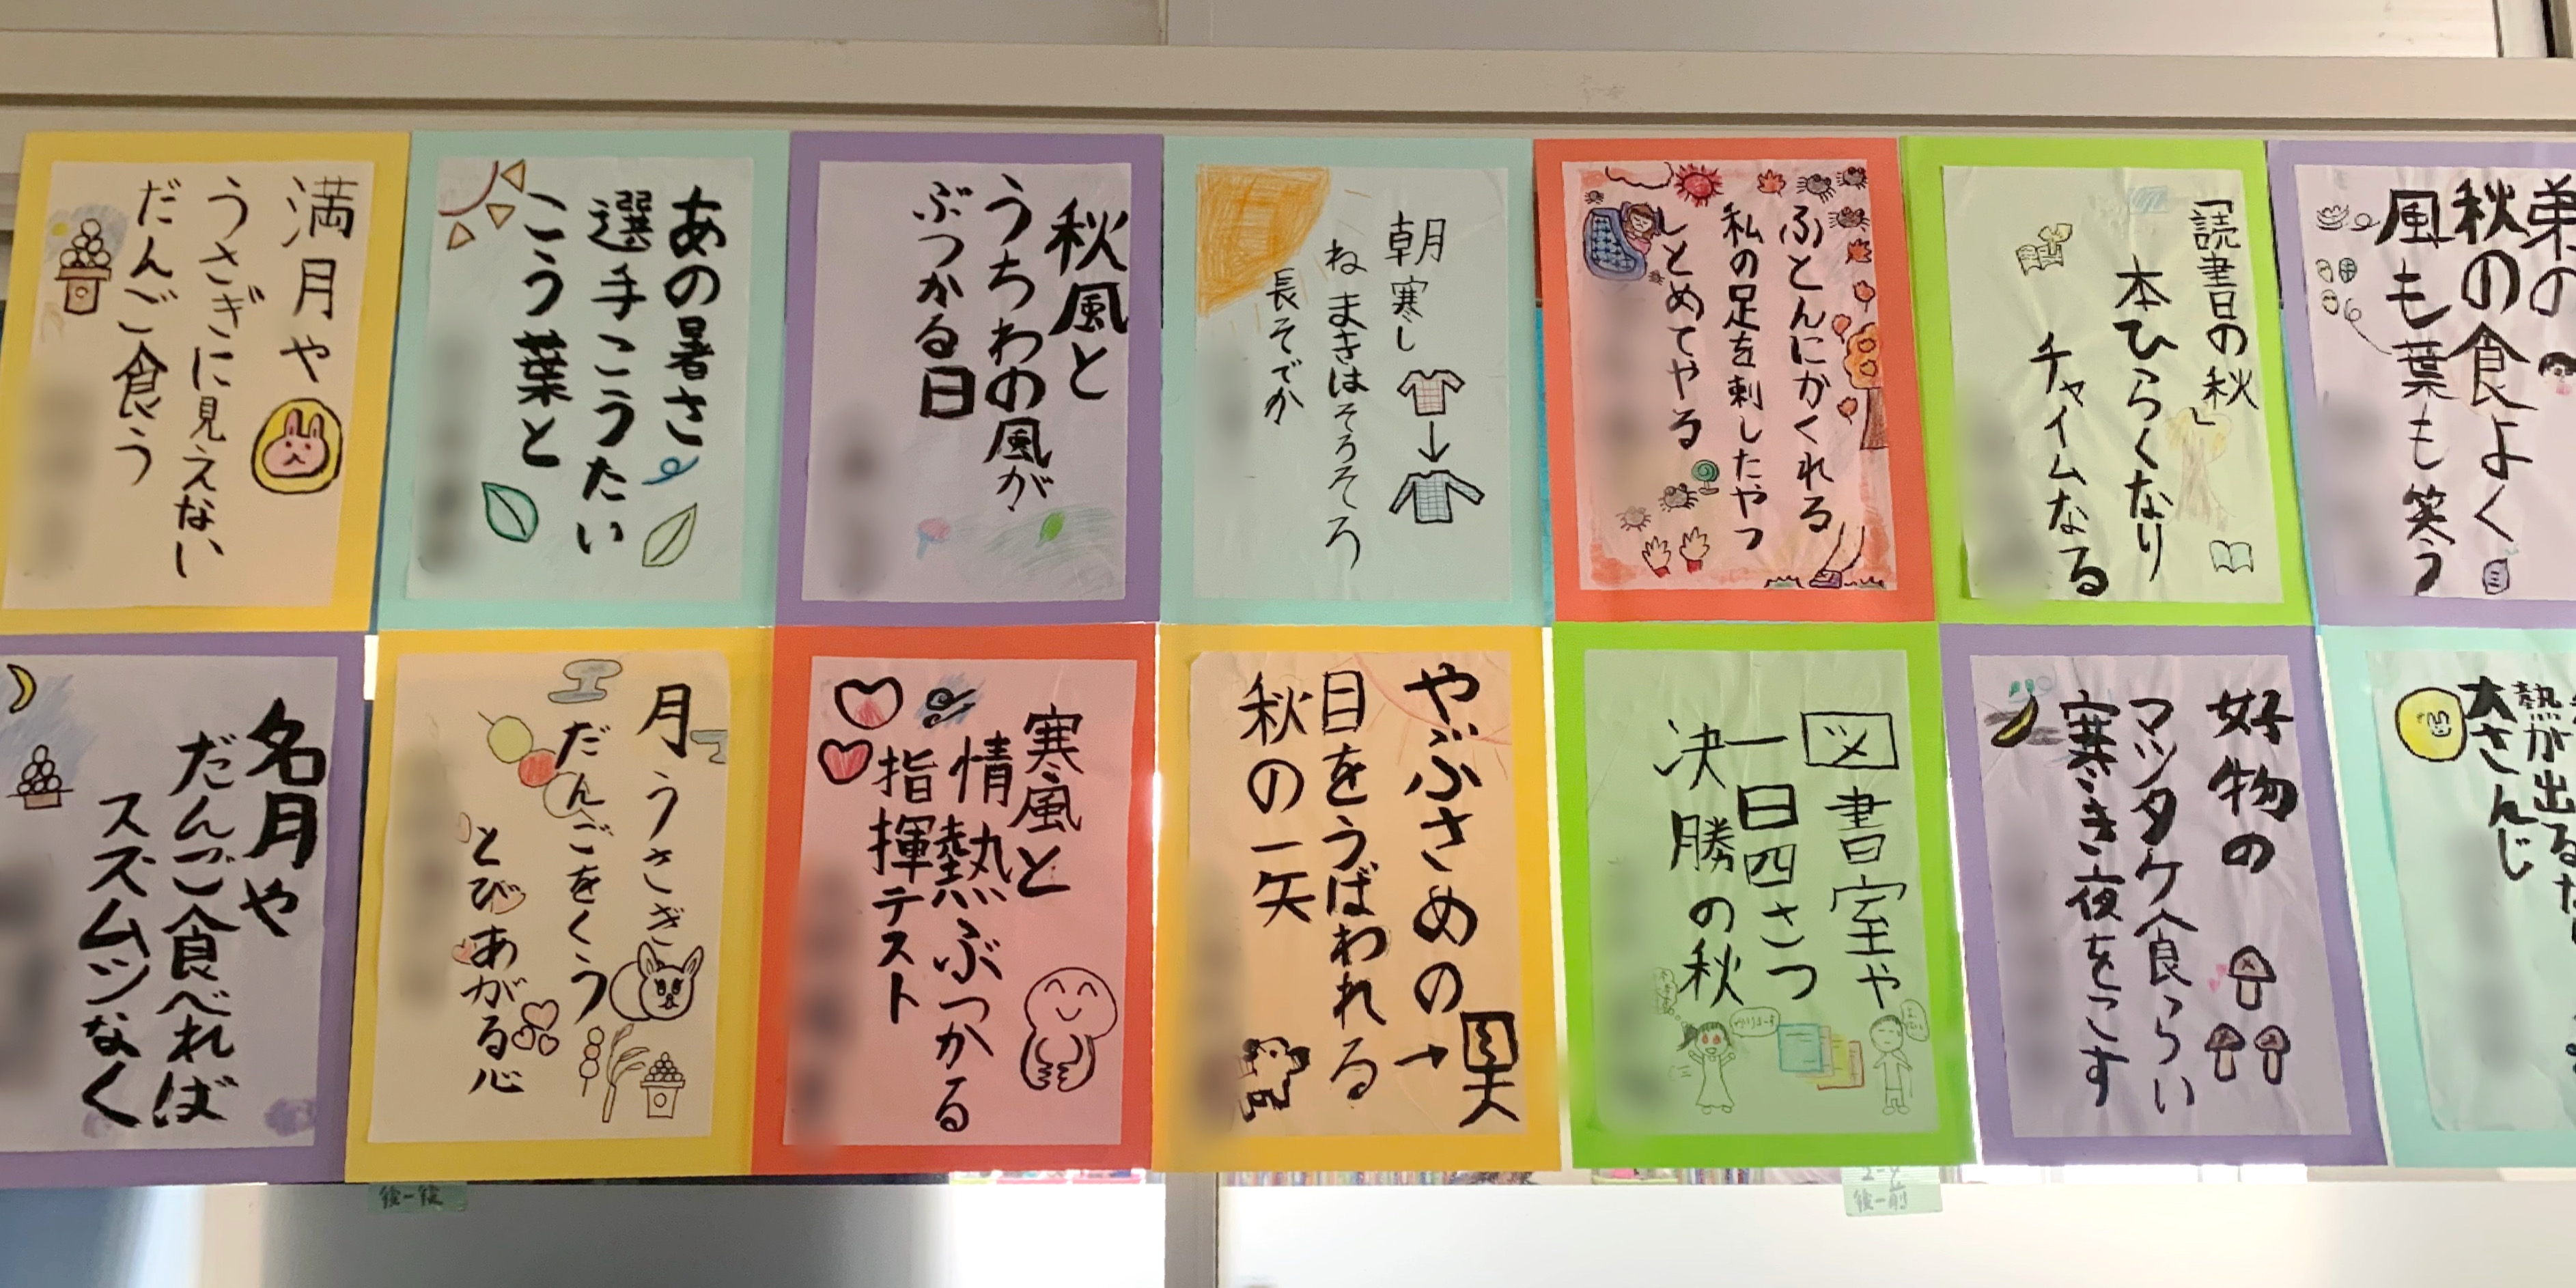 満月や
うさぎに見えない
だんご食う
あの暑さ
選手こうたい
こう葉と
秋風と
うちわの風が
ぶつかる日
朝寒し
ねまきはそろそろ
長そでか
ふとんにかくれる
私の足を刺したやつ
しとめてやる
「読書の秋」
本ひらくなり
チャイムなる
弟の
秋の食よく
風も葉も笑う
名月や
だんご食べれば
スズムシなく
月うさぎ
だんごをくう
とびあがる心
寒風と
情熱ぶつかる
指揮テスト
やぶさめの
目をうばわれる
秋の一矢
図書室や
一日四さつ
決勝の秋
好物の
マツタケ食らい
寒き夜をこす
熱が出るな
大さんじ
後一後
後一前